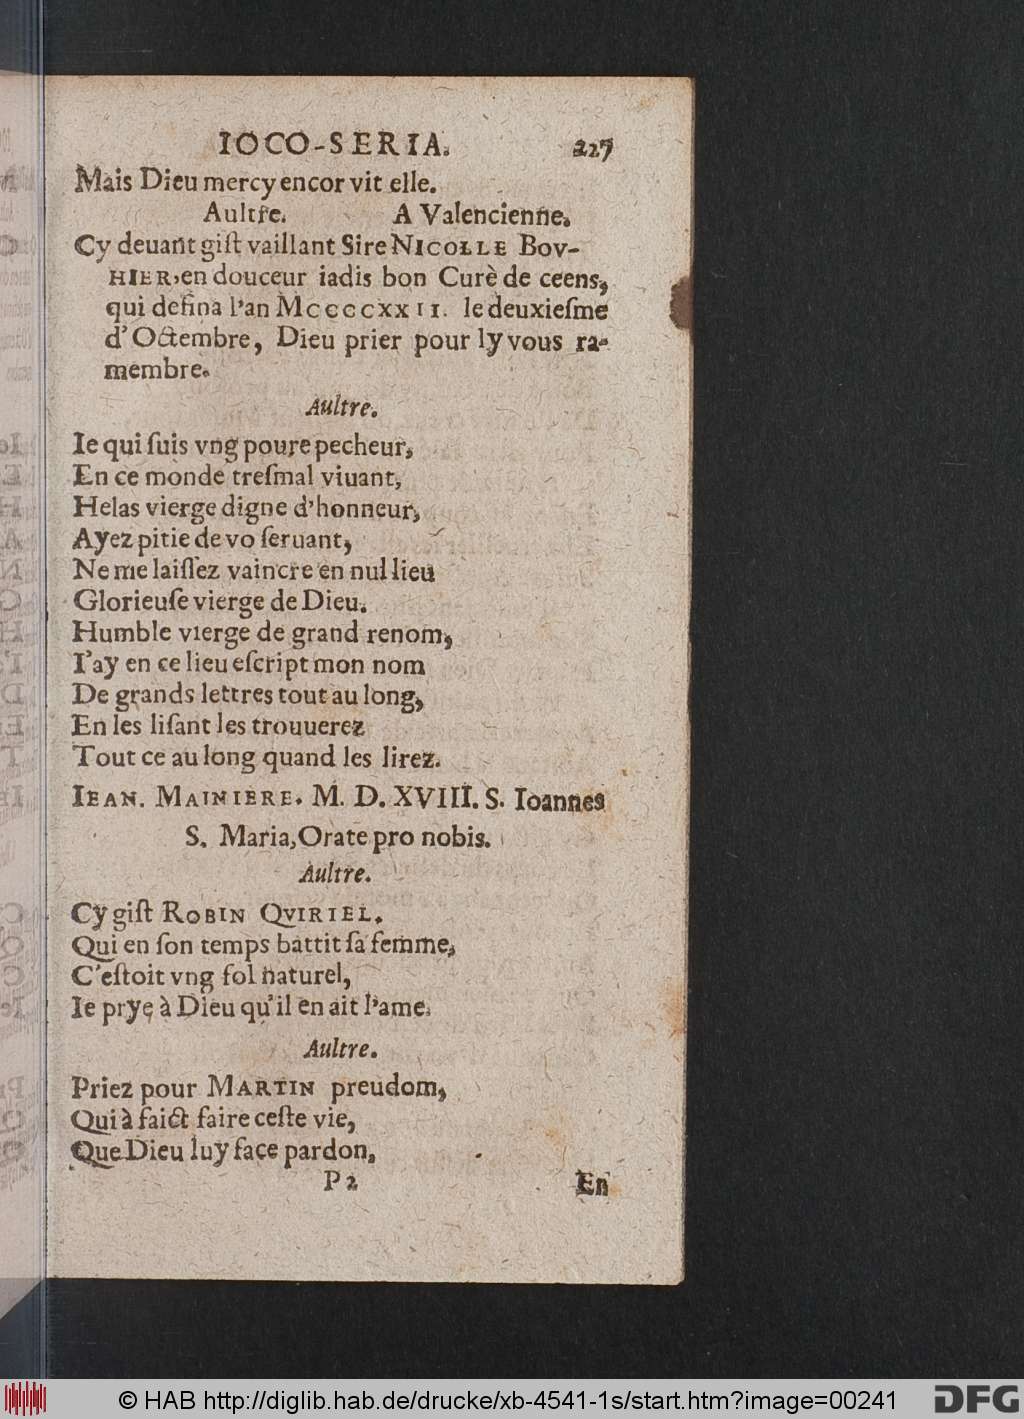 IOCO-SERIA. 227
Mais Dieu mercy encor vit elle.
Aultre. A Valencienne.
Cy deuant giſt vaillant Sire NICOLLE BOV-
HIER, en douceur iadis bon Curè de ceens,
qui defina l'an MCCCCXXII. le deuxieſme
d'Octembre, Dieu prier pour ly vous ra-
membre.
Aultre.
Ie qui ſuis vng poure pecheur,
En ce monde treſmal viuant,
Helas vierge digne d'honneur,
Ayez pitie de vo ſeruant,
Ne me laiſſez vaincre en nul lieu
Glorieuſe vierge de Dieu.
Humble vierge de grand renom,
I'ay en ce lieu eſcript mon nom
De grands lettres tout au long,
En les liſant les trouuerez
Tout ce au long quand les lirez.
IEAN. MAINIERE. M. D. XVIII. S. Ioannes
S. Maria, Orate pro nobis.
Aultre.
Cy giſt ROBIN QVIRIEL.
Qui en ſon temps battit ſa femme,
C'eſtoit vng fol naturel,
Ie prye à Dieu qu'il en ait l'ame.
Aultre.
Priez pour MARTIN preudom,
Qui à faict faire ceſte vie,
Que Dieu luy face pardon,
P 2 En
© HAB http://diglib.hab.de/drucke/xb-4541-1s/start.htm?image=00241 DFG